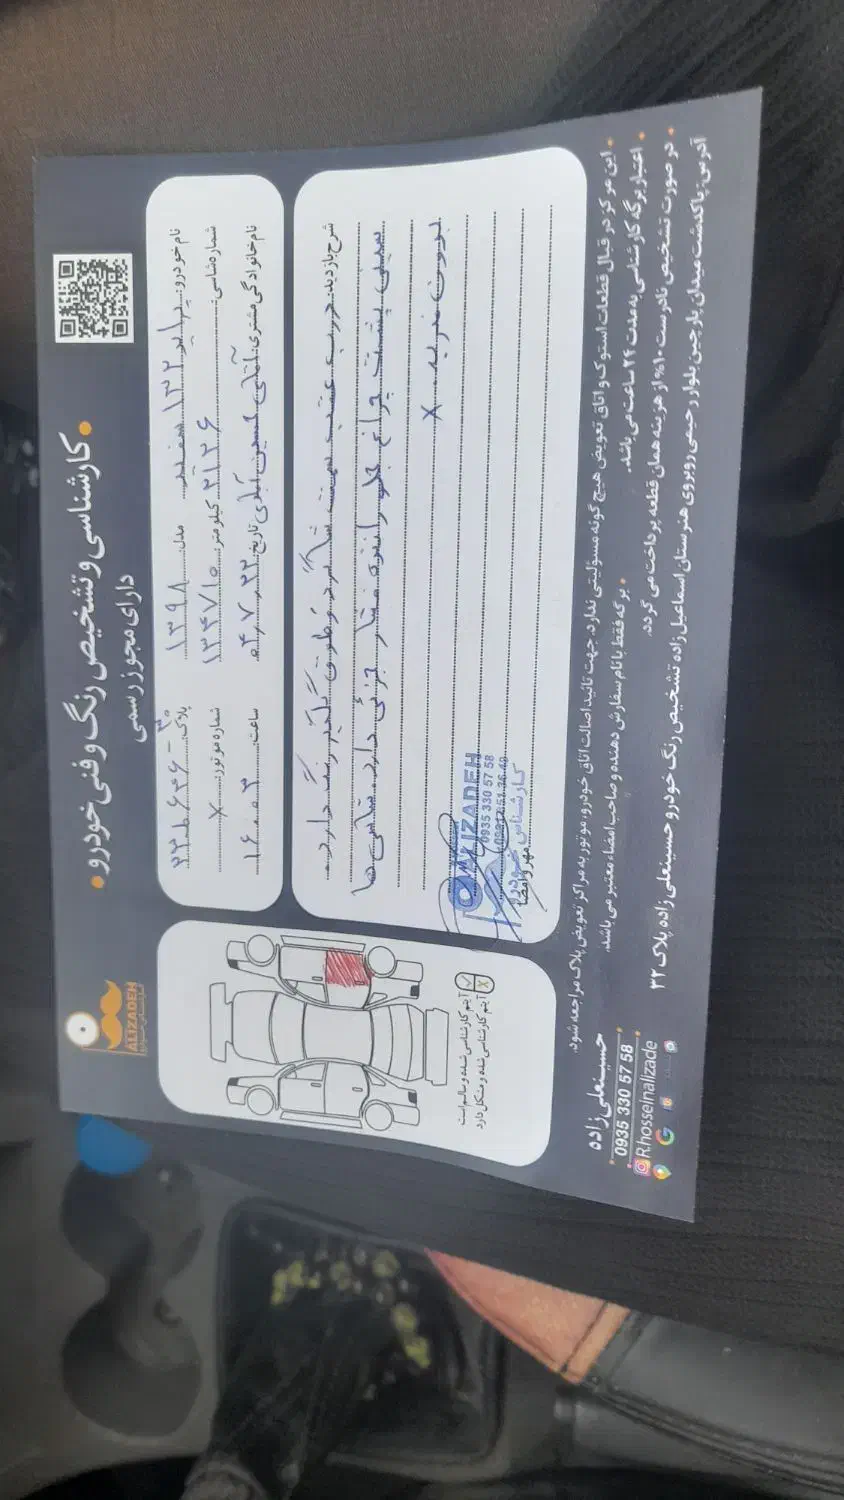 کارشناسی و تشخیص رنگ و فنی خودرو
دارای مجوز رسمی
ALIZADEH
نام خودرو: سایپا ۱۳۲ سفید مدل: ۱۳۹۸ پلاک:
شماره شاسی: ۲۱۲۶ کیلومتر: ۱۳۴۷۱۵ شماره موتور: X
نام خانوادگی مشتری: آقای حسین آبادی تاریخ: ۰۴,۷,۲۲ ساعت:
شرح بازدید: درب عقب سمت شاگرد و طوق گلگیر رنگ دارد.
سینی پشت چراغ جلو راننده فشار جزئی دارد. شاسی ها
بدون ضربه X
ALIZADEH
0935 330 57 58
کارشناس خودرو
مهر و امضا
آیتم کارشناسی شده و سالم است
آیتم کارشناسی شده و مشکل دارد X
این مرکز در قبال قطعات استوک و اتاق تعویض هیچ گونه مسئولیتی ندارد. جهت تائید اصالت اتاق خودرو، موتور به مراکز تعویض پلاک مراجعه شود.
اعتبار برگه کارشناسی به مدت ۲۴ ساعت می باشد.
برگه فقط با نام سفارش دهنده و صاحب امضاء معتبر می باشد.
در صورت تشخیص نادرست ۱۰% از هزینه همان قطعه پرداخت می گردد.
آدرس: پاکدشت میدان پارچین بلوار رحیمی روبروی هنرستان اسماعیل زاده تشخیص رنگ خودرو حسینعلی زاده پلاک ۳۲
حسینعلی زاده
0935 330 57 58
R.hosseinalizade